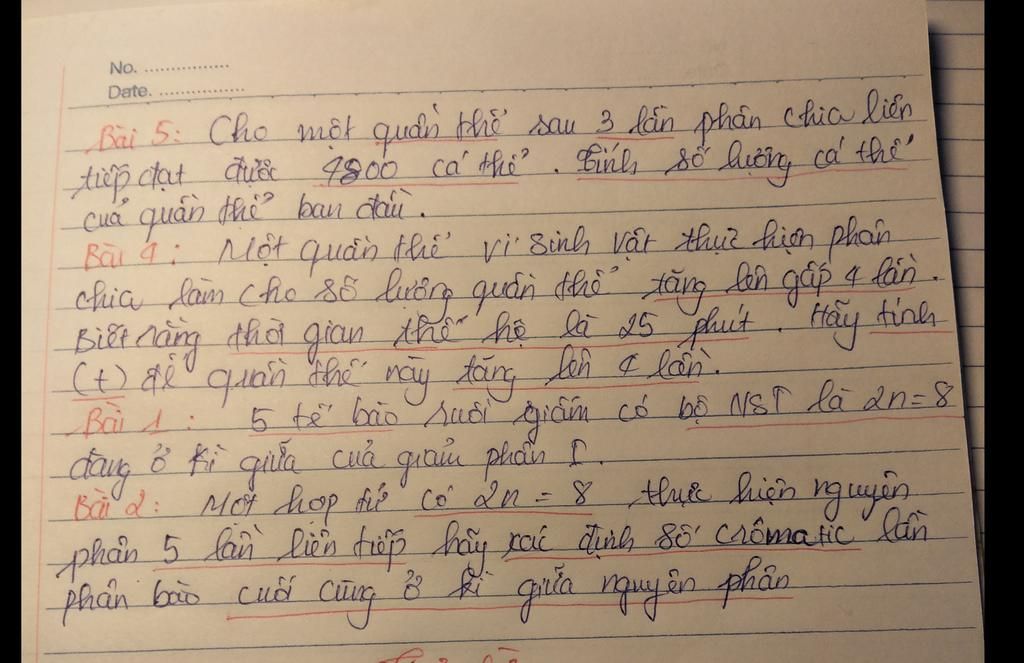 No. ................
Date. ................
Bài 5: Cho một quần thể sau 3 lần phân chia liên
tiếp đạt được 4800 cá thể. Tính số lượng cá thể
của quần thể ban đầu.
Bài 4: Một quần thể vi sinh vật thực hiện phân
chia làm cho số lượng quần thể tăng lên gấp 4 lần.
Biết rằng thời gian thế hệ là 25 phút. Hãy tính
(t) để quần thể này tăng lên 4 lần.
Bài 1: 5 tế bào ruồi giấm có bộ NST là 2n = 8
đang ở kì giữa của giảm phân I.
Bài 2: Một hợp tử có 2n = 8 thực hiện nguyên
phân 5 lần liên tiếp hãy xác định số crômatic lần
phân bào cuối cùng ở kì giữa nguyên phân